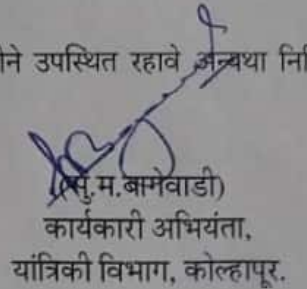 ने उपस्थित रहावे अन्यथा नि
(सु.म.बागेवाडी)
कार्यकारी अभियंता,
यांत्रिकी विभाग, कोल्हापूर.